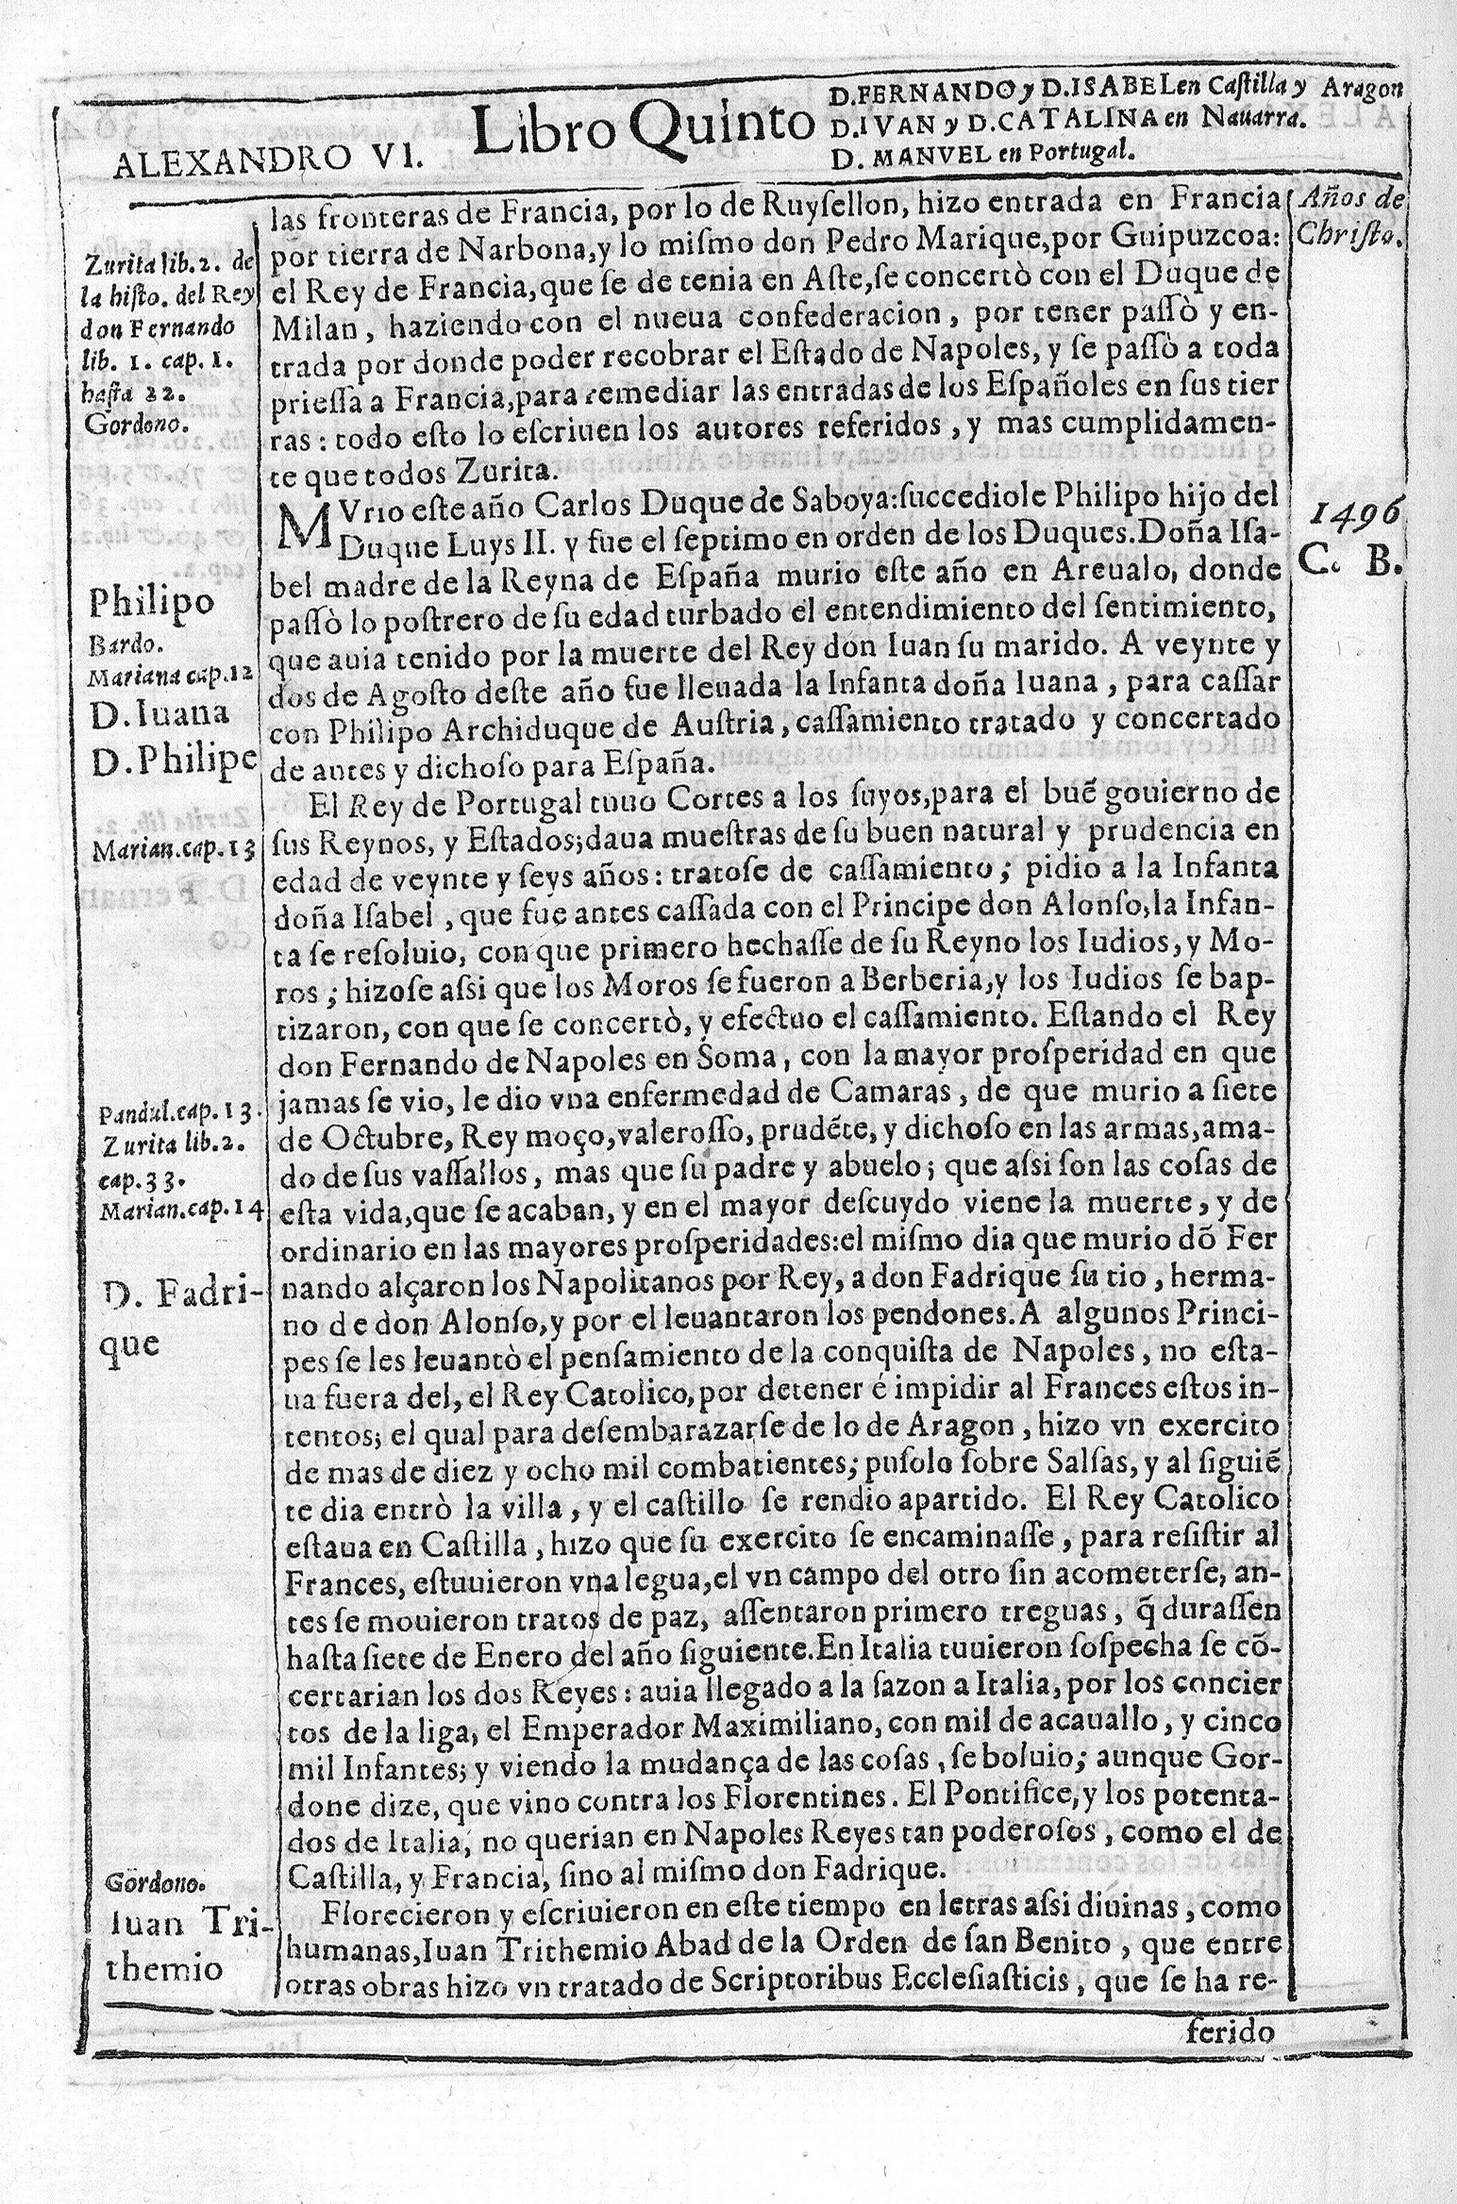 ALEXANDRO VI.
Libro Quinto
D.FERNANDO y D.ISABEL en Castilla y Aragon
D.IVAN y D.CATALINA en Nauarra.
D. MANVEL en Portugal.
Años de
Christo.
las fronteras de Francia, por lo de Ruysellon, hizo entrada en Francia
por tierra de Narbona, y lo mismo don Pedro Marique, por Guipuzcoa:
el Rey de Francia, que se de tenia en Aste, se concertò con el Duque de
Milan, haziendo con el nueua confederacion, por tener passò y en-
trada por donde poder recobrar el Estado de Napoles, y se passò a toda
priessa a Francia, para remediar las entradas de los Españoles en sus tier
ras: todo esto lo escriuen los autores referidos, y mas cumplidamen-
te que todos Zurita.
Zurita lib. 2. de
la histo. del Rey
don Fernando
lib. 1. cap. 1.
hasta 22.
Gordono.
MVrio este año Carlos Duque de Saboya: succediole Philipo hijo del
Duque Luys II. y fue el septimo en orden de los Duques. Doña Isa-
bel madre de la Reyna de España murio este año en Areualo, donde
passò lo postrero de su edad turbado el entendimiento del sentimiento,
que auia tenido por la muerte del Rey don Iuan su marido. A veynte y
dos de Agosto deste año fue lleuada la Infanta doña Iuana, para cassar
con Philipo Archiduque de Austria, cassamiento tratado y concertado
de antes y dichoso para España.
1496
C. B.
Philipo
Bardo.
Mariana cap. 12
D. Iuana
D. Philipe
El Rey de Portugal tuuo Cortes a los suyos, para el buẽ gouierno de
sus Reynos, y Estados; daua muestras de su buen natural y prudencia en
edad de veynte y seys años: tratose de cassamiento; pidio a la Infanta
doña Isabel, que fue antes cassada con el Principe don Alonso, la Infan-
ta se resoluio, con que primero hechasse de su Reyno los Iudios, y Mo-
ros; hizose assi que los Moros se fueron a Berberia, y los Iudios se bap-
tizaron, con que se concertò, y efectuo el cassamiento. Estando el Rey
don Fernando de Napoles en Soma, con la mayor prosperidad en que
jamas se vio, le dio vna enfermedad de Camaras, de que murio a siete
de Octubre, Rey moço, valerosso, prudẽte, y dichoso en las armas, ama-
do de sus vassallos, mas que su padre y abuelo; que assi son las cosas de
esta vida, que se acaban, y en el mayor descuydo viene la muerte, y de
ordinario en las mayores prosperidades: el mismo dia que murio dõ Fer
nando alçaron los Napolitanos por Rey, a don Fadrique su tio, herma-
no de dòn Alonso, y por el leuantaron los pendones. A algunos Princi-
pes se les leuantò el pensamiento de la conquista de Napoles, no esta-
ua fuera del, el Rey Catolico, por detener é impidir al Frances estos in-
tentos; el qual para desembarazarse de lo de Aragon, hizo vn exercito
de mas de diez y ocho mil combatientes; pusolo sobre Salsas, y al siguiẽ
te dia entrò la villa, y el castillo se rendio apartido. El Rey Catolico
estaua en Castilla, hizo que su exercito se encaminasse, para resistir al
Frances, estuuieron vna legua, el vn campo del otro sin acometerse, an-
tes se mouieron tratos de paz, assentaron primero treguas, q̃ durassen
hasta siete de Enero del año siguiente. En Italia tuuieron sospecha se cõ-
certarian los dos Reyes: auia llegado a la sazon a Italia, por los concier
tos de la liga, el Emperador Maximiliano, con mil de acauallo, y cinco
mil Infantes; y viendo la mudança de las cosas, se boluio; aunque Gor-
done dize, que vino contra los Florentines. El Pontifice, y los potenta-
dos de Italia, no querian en Napoles Reyes tan poderosos, como el de
Castilla, y Francia, sino al mismo don Fadrique.
Marian. cap. 13
Pandul. cap. 13.
Zurita lib. 2.
cap. 33.
Marian. cap. 14
D. Fadri-
que
Florecieron y escriuieron en este tiempo en letras assi diuinas, como
humanas, Iuan Trithemio Abad de la Orden de san Benito, que entre
otras obras hizo vn tratado de Scriptoribus Ecclesiasticis, que se ha re-
Gordono.
Iuan Tri-
themio
ferido